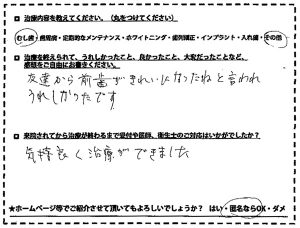 治療内容を教えてください。(丸をつけてください)
むし歯・歯周病・定期的なメンテナンス・ホワイトニング・歯列矯正・インプラント・入れ歯・その他
治療を終えられて、うれしかったこと、良かったこと、大変だったことなど、
感想をご自由にお書きください。
友達から前歯がきれいになったねと言われ
うれしかったです
来院されてから治療が終わるまで受付や医師、衛生士のご対応はいかがでしたか?
気持良く治療ができました
★ホームページ等でご紹介させて頂いてもよろしいでしょうか? はい・匿名ならOK・ダメ